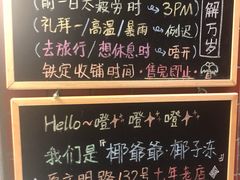 (前一日太疲劳时→3PM)
(礼拜一/高温/暴雨→倒迟)
(去旅行/想休息时→唔开)
铁定收铺时间·售完即止
解万岁
Hello~噔噔噔
我们是"椰爷爷·椰子冻
文明路132号十年老店